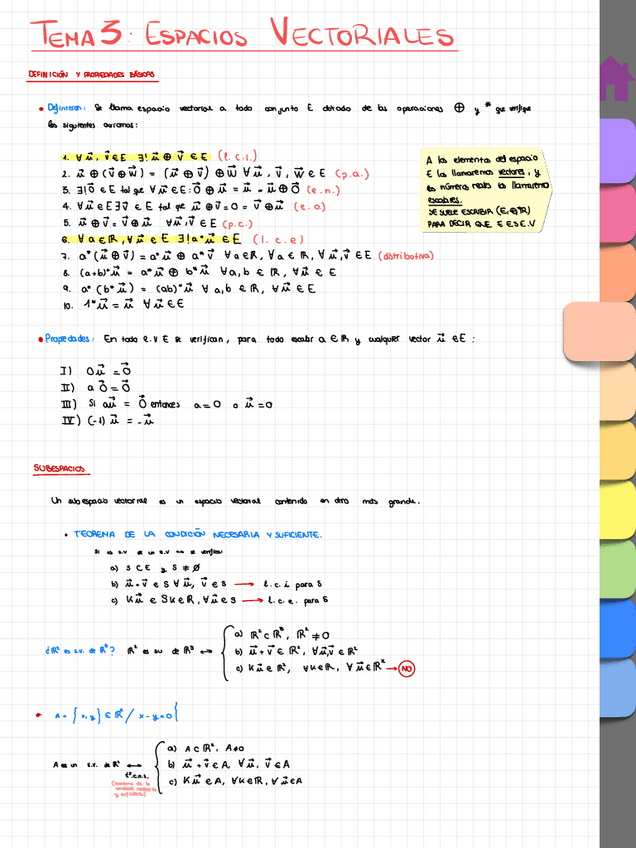 TEMA 3: ESPACIOS VECTORIALES
DEFINICIÓN Y PROPIEDADES BÁSICAS
• Definición: Se llama espacio vectorial a todo conjunto E dotado de las operaciones ⊕ y * que verifique
los siguientes axiomas:
1. ∀ u⃗, v⃗ ∈ E ∃! u⃗ ⊕ v⃗ ∈ E (l.c.i.)
2. u⃗ ⊕ (v⃗ ⊕ w⃗) = (u⃗ ⊕ v⃗) ⊕ w⃗ ∀ u⃗, v⃗, w⃗ ∈ E (p.a.)
3. ∃! 0⃗ ∈ E tal que ∀ u⃗ ∈ E: 0⃗ ⊕ u⃗ = u⃗ = u⃗ ⊕ 0⃗ (e.n.)
4. ∀ u⃗ ∈ E ∃ v⃗ ∈ E tal que u⃗ ⊕ v⃗ = 0 = v⃗ ⊕ u⃗ (e.o)
5. u⃗ ⊕ v⃗ = v⃗ ⊕ u⃗ ∀ u⃗, v⃗ ∈ E (p.c.)
6. ∀ a ∈ ℝ, ∀ u⃗ ∈ E ∃! a * u⃗ ∈ E (l.c.e)
7. a * (u⃗ ⊕ v⃗) = a * u⃗ ⊕ a * v⃗ ∀ a ∈ ℝ, ∀ a ∈ ℝ, ∀ u⃗, v⃗ ∈ E (distributiva)
8. (a+b) * u⃗ = a * u⃗ ⊕ b * u⃗ ∀ a, b ∈ ℝ, ∀ u⃗ ∈ E
9. a * (b * u⃗) = (ab) * u⃗ ∀ a, b ∈ ℝ, ∀ u⃗ ∈ E
10. 1 * u⃗ = u⃗ ∀ u⃗ ∈ E
A los elementos del espacio
E los llamaremos vectores, y
los números reales los llamaremos
escalares.
SE SUELE ESCRIBIR (E, ⊕, *, ℝ)
PARA DECIR QUE E ES E.V
• Propiedades: En todo e.v E se verifican, para todo escalar a ∈ ℝ y cualquier vector u⃗ ∈ E:
I) 0u⃗ = 0⃗
II) a 0⃗ = 0⃗
III) Si au⃗ = 0⃗ entonces a = 0 o u⃗ = 0
IV) (-1) u⃗ = -u⃗
SUBESPACIOS
Un subespacio vectorial es un espacio vectorial contenido en otro más grande.
• TEOREMA DE LA CONDICIÓN NECESARIA Y SUFICIENTE.
a) S ⊂ E y S ≠ ∅
b) u⃗ + v⃗ ∈ S ∀ u⃗, v⃗ ∈ S → l.c.i para S
c) K u⃗ ∈ S K ∈ ℝ, ∀ u⃗ ∈ S → l.c.e. para S
¿ℝ² es s.v. de ℝ³? ℝ² es sv de ℝ³ ↔
a) ℝ² ⊂ ℝ³, ℝ² ≠ 0
b) u⃗ + v⃗ ∈ ℝ², ∀ u⃗, v⃗ ∈ ℝ²
c) K u⃗ ∈ ℝ², ∀ K ∈ ℝ, ∀ u⃗ ∈ ℝ² → NO
• A = { x, y } ∈ ℝ² / x - y = 0 {
A es un s.v. de ℝ² ↔
t.c.n.s.
a) A ⊂ ℝ², A ≠ 0
b) u⃗ + v⃗ ∈ A, ∀ u⃗, v⃗ ∈ A
c) K u⃗ ∈ A, ∀ K ∈ ℝ, ∀ u⃗ ∈ A